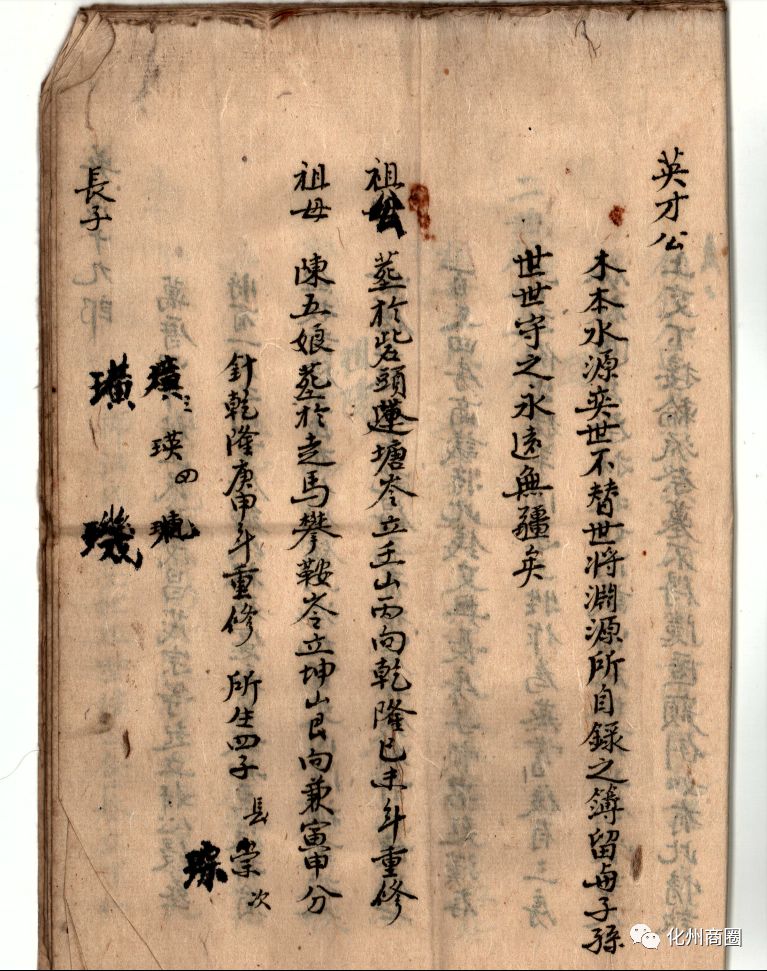 英才公
木本水源奕世不替世將淵源所自録之簿留與子孫
世世守之永遠無疆矣
祖公 塟於砦頭蓮塘岺立壬山丙向乾隆己未年重修
祖母 陳五娘塟於走馬攀鞍岺立坤山艮向兼寅申分
針乾隆庚申年重修 所生四子 長崇 次琮
三瑛 四
長子 璜 璣
化州商圈